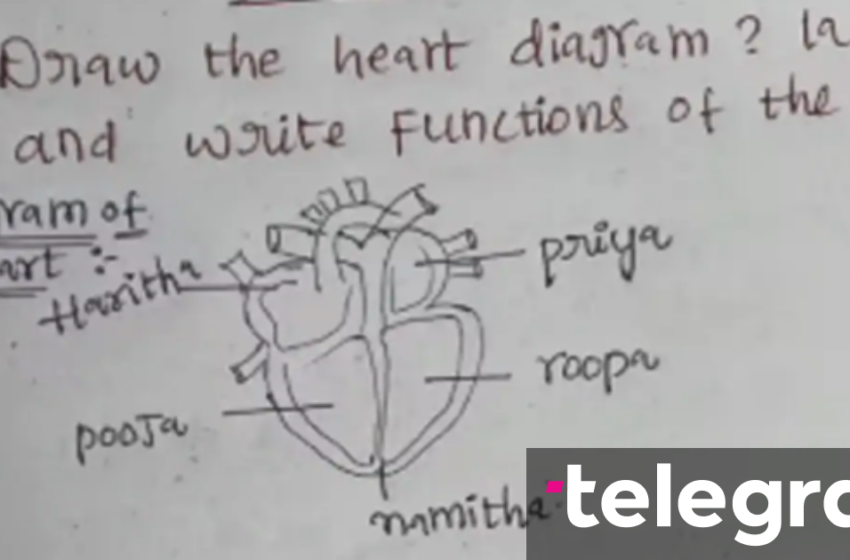 Draw the heart diagram ? la
and write Functions of the
ram of
art :-
Haritha
priya
roopa
pooJa
namitha
telegra